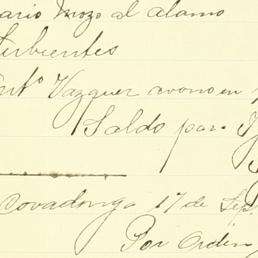 ario Mozo al alamo
Sirbientes
Anto Vazquez avono en
Saldo para
Covadonga 17 de Sep
Por Orden